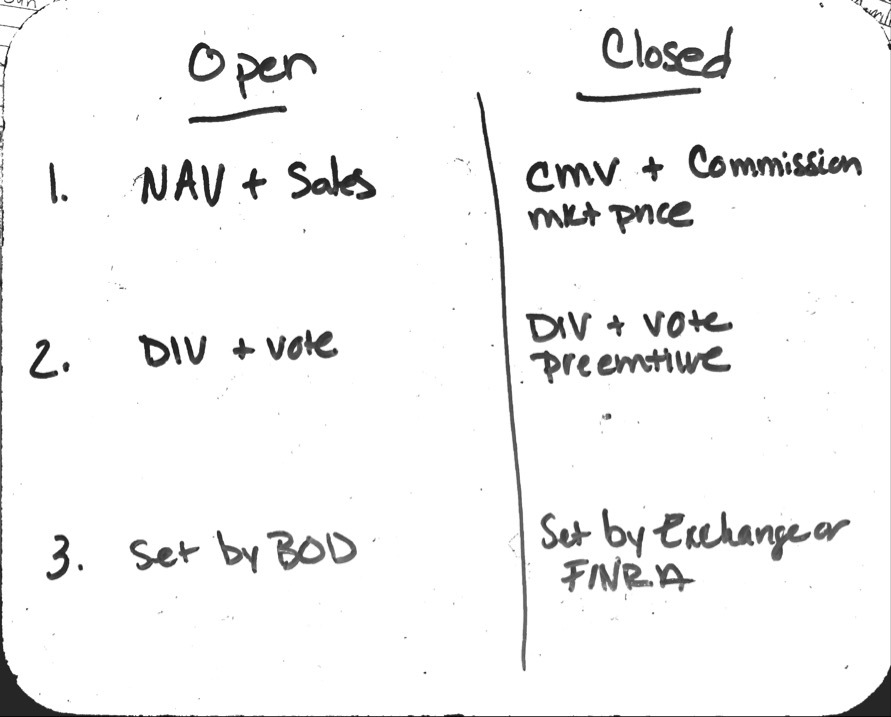 Open
Closed
1. NAV + Sales
CMV + Commission
mkt price
2. DIV + vote
DIV + vote
preemtive
3. Set by BOD
Set by Exchange or
FINRA